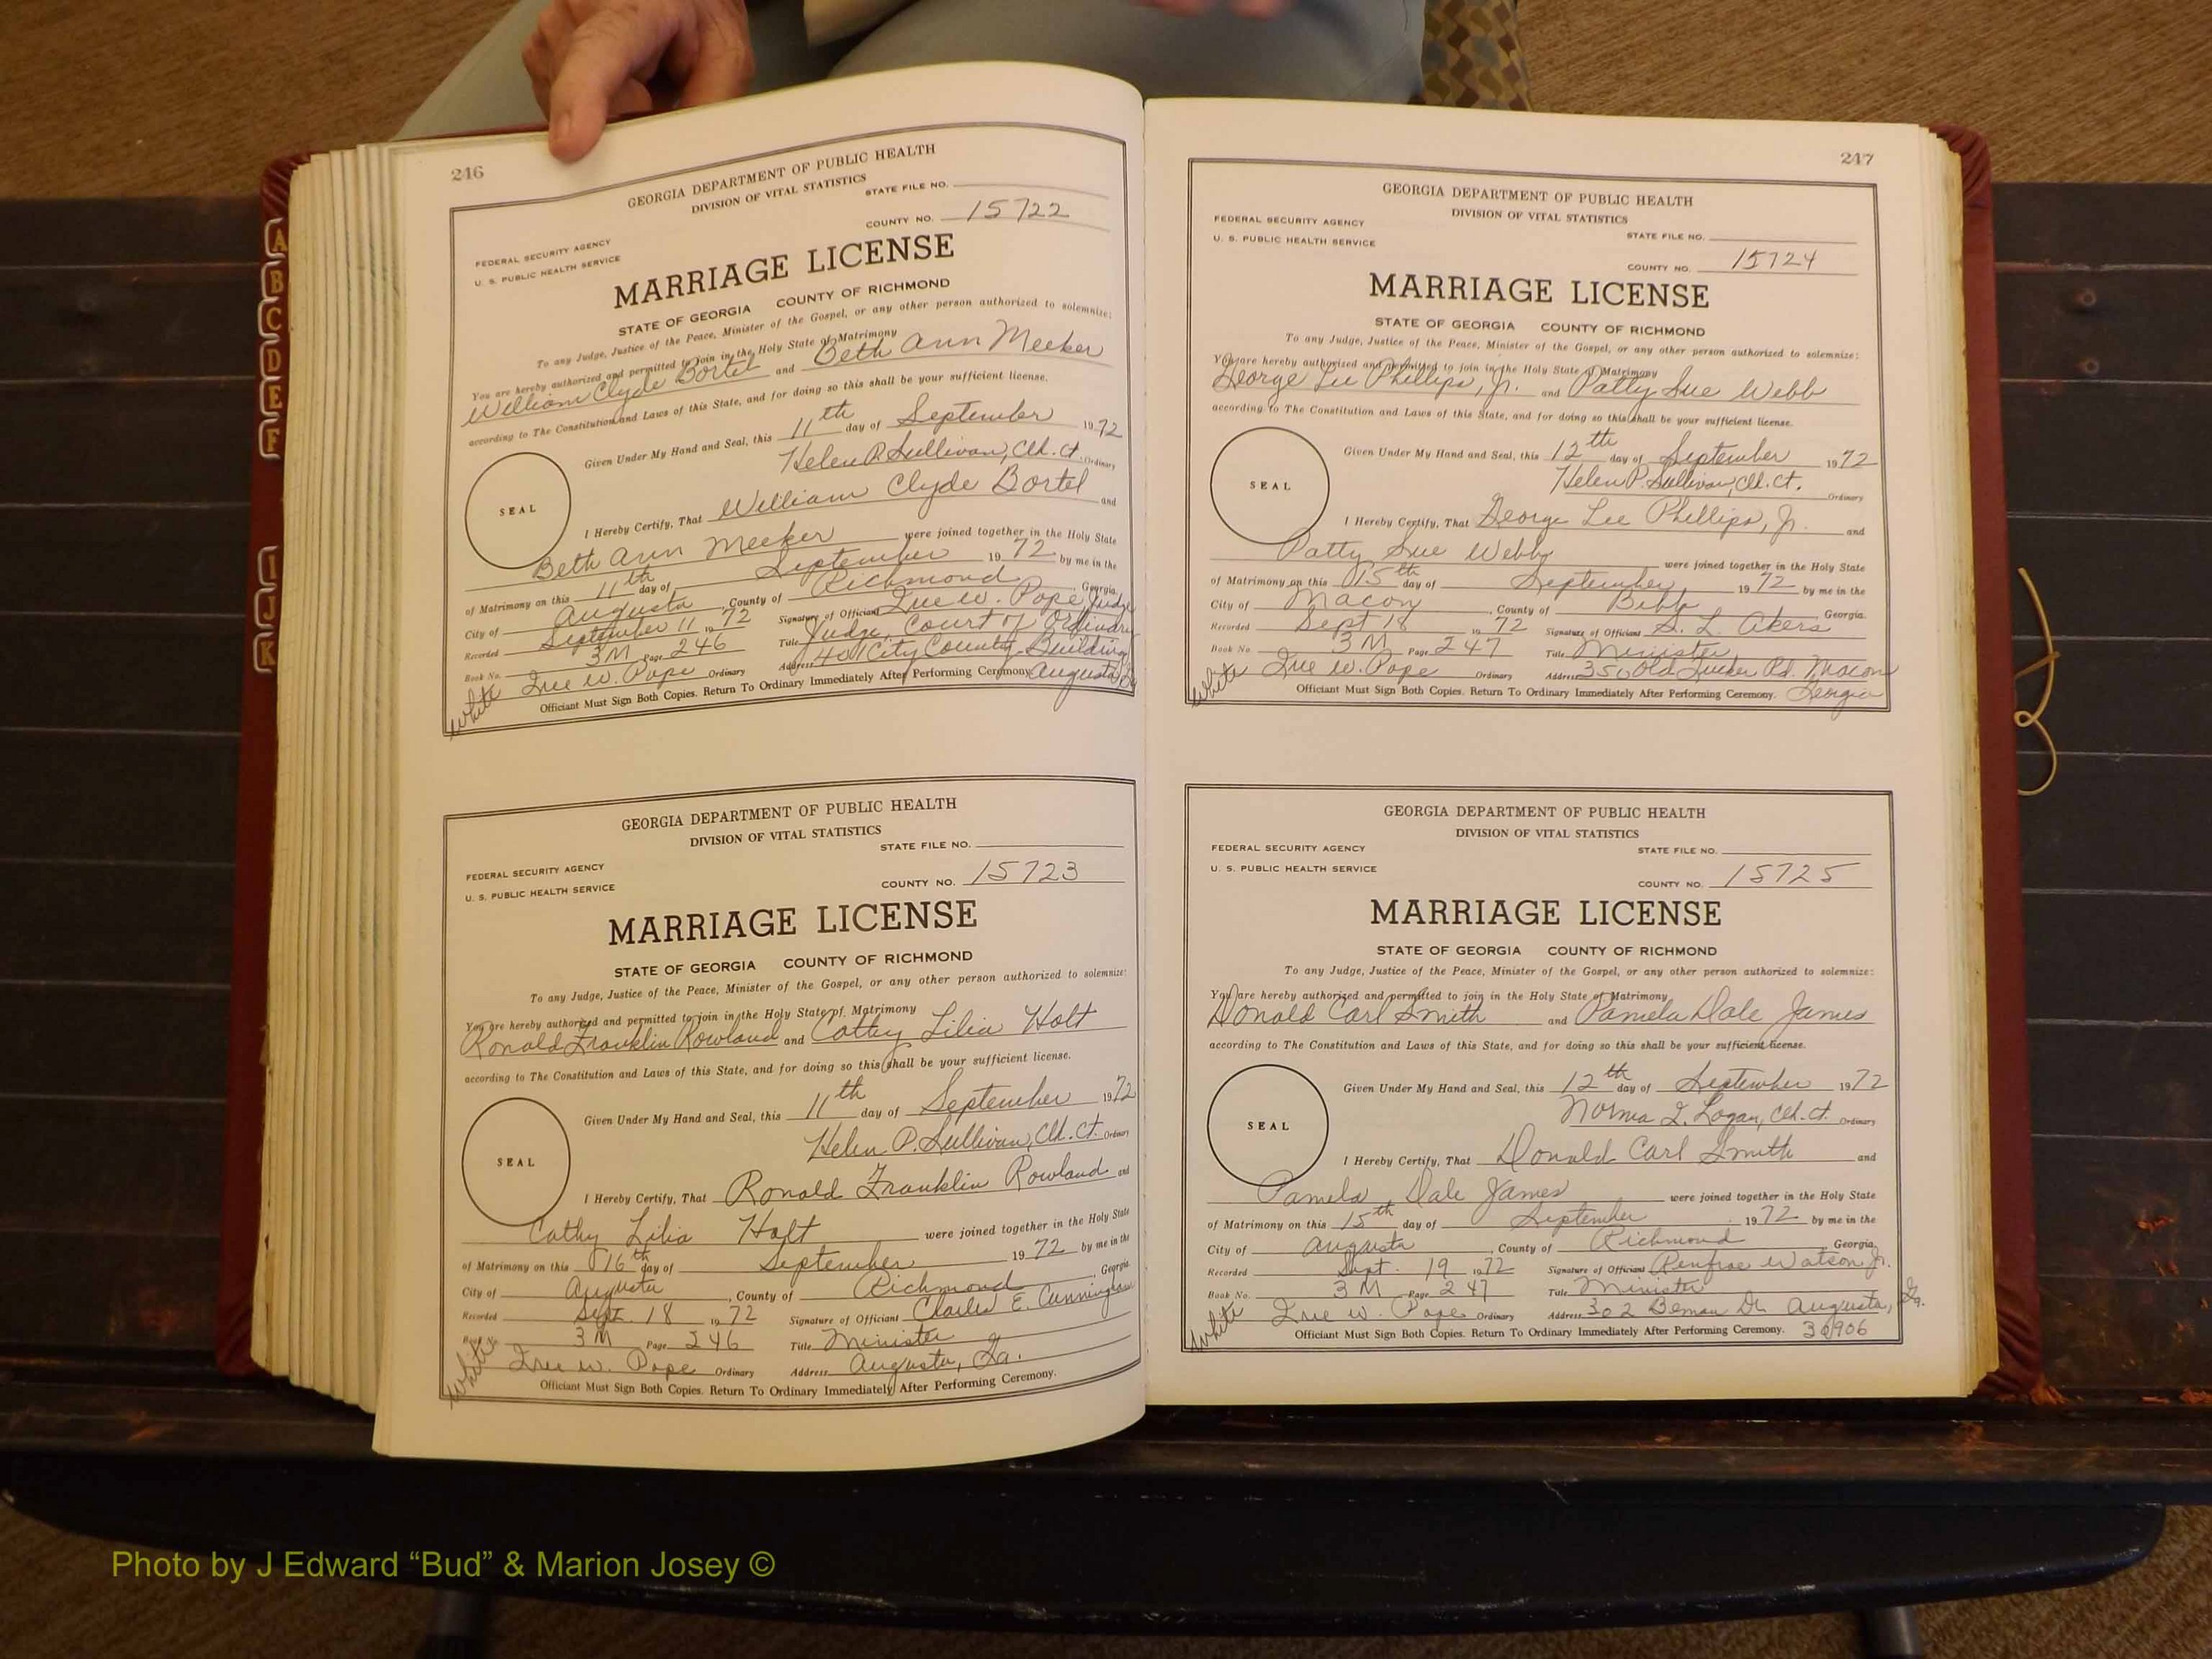 A
B
C
D
E
F
I
J
K
246
GEORGIA DEPARTMENT OF PUBLIC HEALTH
DIVISION OF VITAL STATISTICS
STATE FILE NO.
COUNTY NO. 15722
FEDERAL SECURITY AGENCY
U. S. PUBLIC HEALTH SERVICE
MARRIAGE LICENSE
STATE OF GEORGIA COUNTY OF RICHMOND
To any Judge, Justice of the Peace, Minister of the Gospel, or any other person authorized to solemnize:
You are hereby authorized and permitted to join in the Holy State of Matrimony
William Clyde Bortel and Beth Ann Meeker
according to The Constitution and Laws of this State, and for doing so this shall be your sufficient license.
Given Under My Hand and Seal, this 11th day of September 1972
Helen P. Sullivan, Clk. Ct. Ordinary
SEAL
I Hereby Certify, That William Clyde Bortel and
Beth Ann Meeker were joined together in the Holy State
of Matrimony on this 11th day of September 1972 by me in the
City of Augusta County of Richmond Georgia.
Recorded September 11 1972 Signature of Officiant Irue W. Pope Judge
Book No. 3M Page 246 Title Judge, Court of Ordinary
Irue W. Pope Ordinary Address 401 City County Building
White Officiant Must Sign Both Copies. Return To Ordinary Immediately After Performing Ceremony. Augusta, Ga
GEORGIA DEPARTMENT OF PUBLIC HEALTH
DIVISION OF VITAL STATISTICS
STATE FILE NO.
FEDERAL SECURITY AGENCY
U. S. PUBLIC HEALTH SERVICE
COUNTY NO. 15723
MARRIAGE LICENSE
STATE OF GEORGIA COUNTY OF RICHMOND
To any Judge, Justice of the Peace, Minister of the Gospel, or any other person authorized to solemnize:
You are hereby authorized and permitted to join in the Holy State of Matrimony
Ronald Franklin Rowland and Cathy Lilia Holt
according to The Constitution and Laws of this State, and for doing so this shall be your sufficient license.
Given Under My Hand and Seal, this 11th day of September 1972
Helen P. Sullivan, Clk. Ct. Ordinary
SEAL
I Hereby Certify, That Ronald Franklin Rowland and
Cathy Lilia Holt were joined together in the Holy State
of Matrimony on this 16th day of September 1972 by me in the
City of Augusta, County of Richmond Georgia
Recorded Sept. 18 1972 Signature of Officiant Charles E. Cunningham
Book No. 3M Page 246 Title Minister
Irue W. Pope Ordinary Address Augusta, Ga.
White Officiant Must Sign Both Copies. Return To Ordinary Immediately After Performing Ceremony.
247
GEORGIA DEPARTMENT OF PUBLIC HEALTH
DIVISION OF VITAL STATISTICS
FEDERAL SECURITY AGENCY
U. S. PUBLIC HEALTH SERVICE
STATE FILE NO.
COUNTY NO. 15724
MARRIAGE LICENSE
STATE OF GEORGIA COUNTY OF RICHMOND
To any Judge, Justice of the Peace, Minister of the Gospel, or any other person authorized to solemnize:
You are hereby authorized and permitted to join in the Holy State of Matrimony
George Lee Phillips, Jr. and Patty Sue Webb
according to The Constitution and Laws of this State, and for doing so this shall be your sufficient license.
Given Under My Hand and Seal, this 12th day of September 1972
Helen P. Sullivan, Clk. Ct. Ordinary
SEAL
I Hereby Certify, That George Lee Phillips, Jr. and
Patty Sue Webb were joined together in the Holy State
of Matrimony on this 15th day of September 1972 by me in the
City of Macon, County of Bibb Georgia.
Recorded Sept 18 1972 Signature of Officiant S. L. Akers
Book No. 3M Page 247 Title Minister
Irue W. Pope Ordinary Address Old Rd. Macon
White Officiant Must Sign Both Copies. Return To Ordinary Immediately After Performing Ceremony. Georgia
GEORGIA DEPARTMENT OF PUBLIC HEALTH
DIVISION OF VITAL STATISTICS
FEDERAL SECURITY AGENCY
U. S. PUBLIC HEALTH SERVICE
STATE FILE NO.
COUNTY NO. 15725
MARRIAGE LICENSE
STATE OF GEORGIA COUNTY OF RICHMOND
To any Judge, Justice of the Peace, Minister of the Gospel, or any other person authorized to solemnize:
You are hereby authorized and permitted to join in the Holy State of Matrimony
Donald Carl Smith and Pamela Dale James
according to The Constitution and Laws of this State, and for doing so this shall be your sufficient license.
Given Under My Hand and Seal, this 12th day of September 1972
Norma I. Logan, Clk. Ct. Ordinary
SEAL
I Hereby Certify, That Donald Carl Smith and
Pamela Dale James were joined together in the Holy State
of Matrimony on this 15th day of September 1972 by me in the
City of Augusta, County of Richmond Georgia.
Recorded Sept. 19 1972 Signature of Officiant Renfroe Watson Jr.
Book No. 3M Page 247 Title Minister
Irue W. Pope Ordinary Address 302 Beman Dr Augusta, Ga.
White Officiant Must Sign Both Copies. Return To Ordinary Immediately After Performing Ceremony. 30906
Photo by J Edward “Bud” & Marion Josey ©